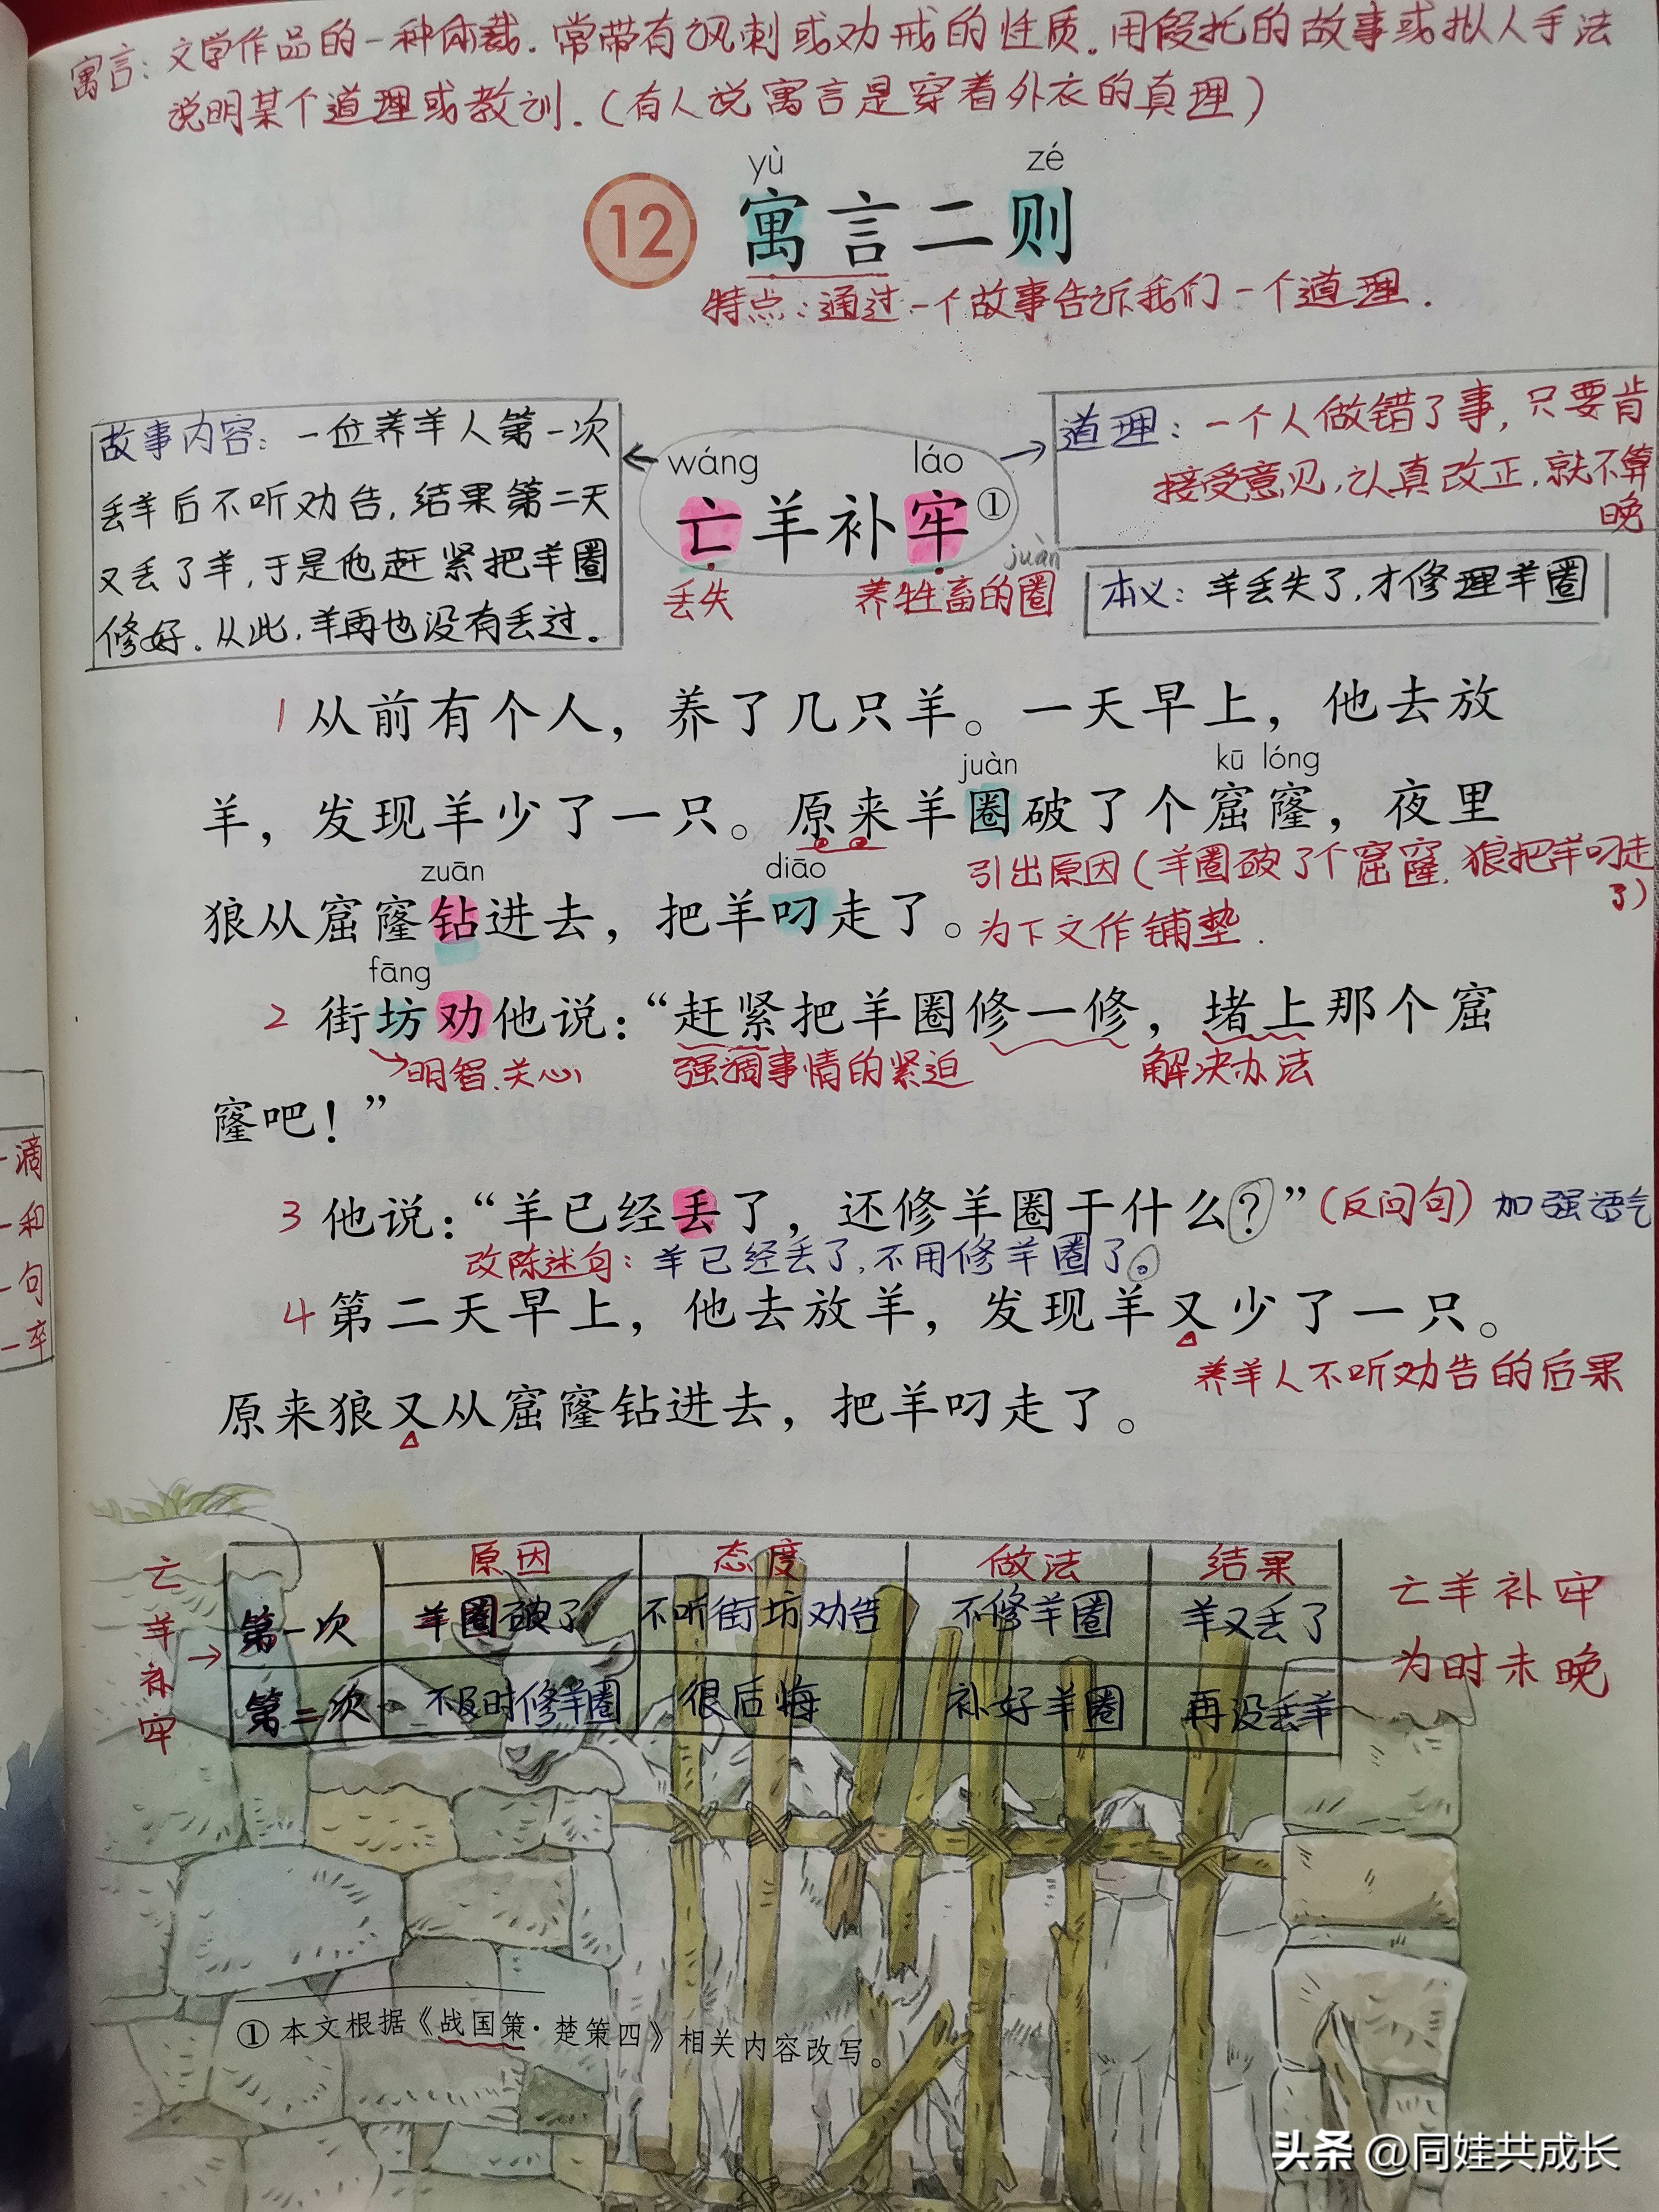 寓言：文学作品的一种体裁.常带有讽刺或劝戒的性质.用假托的故事或拟人手法
说明某个道理或教训.（有人说寓言是穿着外衣的真理）
yù zé
12 寓言二则
特点：通过一个故事告诉我们一个道理.
故事内容：一位养羊人第一次
丢羊后不听劝告,结果第二天
又丢了羊,于是他赶紧把羊圈
修好.从此,羊再也没有丢过.
wáng láo
亡羊补牢①
丢失 养牲畜的圈
juàn
道理：一个人做错了事,只要肯
接受意见,认真改正,就不算
晚
本义：羊丢失了,才修理羊圈
1 从前有个人，养了几只羊。一天早上，他去放
juàn kū lóng
羊，发现羊少了一只。原来羊圈破了个窟窿，夜里
引出原因(羊圈破了个窟窿.狼把羊叼走
了)
zuān diāo
狼从窟窿钻进去，把羊叼走了。
为下文作铺垫.
fāng
2 街坊劝他说：“赶紧把羊圈修一修，堵上那个窟
明智.关心 强调事情的紧迫 解决办法
窿吧！”
3 他说：“羊已经丢了，还修羊圈干什么？”(反问句) 加强语气
改陈述句：羊已经丢了,不用修羊圈了。
4 第二天早上，他去放羊，发现羊又少了一只。
养羊人不听劝告的后果
原来狼又从窟窿钻进去，把羊叼走了。
滴
和
句
卒
亡羊补牢
原因 态度 做法 结果
第一次 羊圈破了 不听街坊劝告 不修羊圈 羊又丢了
第二次 不及时修羊圈 很后悔 补好羊圈 再没丢羊
亡羊补牢
为时未晚
①本文根据《战国策·楚策四》相关内容改写。
头条 @同娃共成长